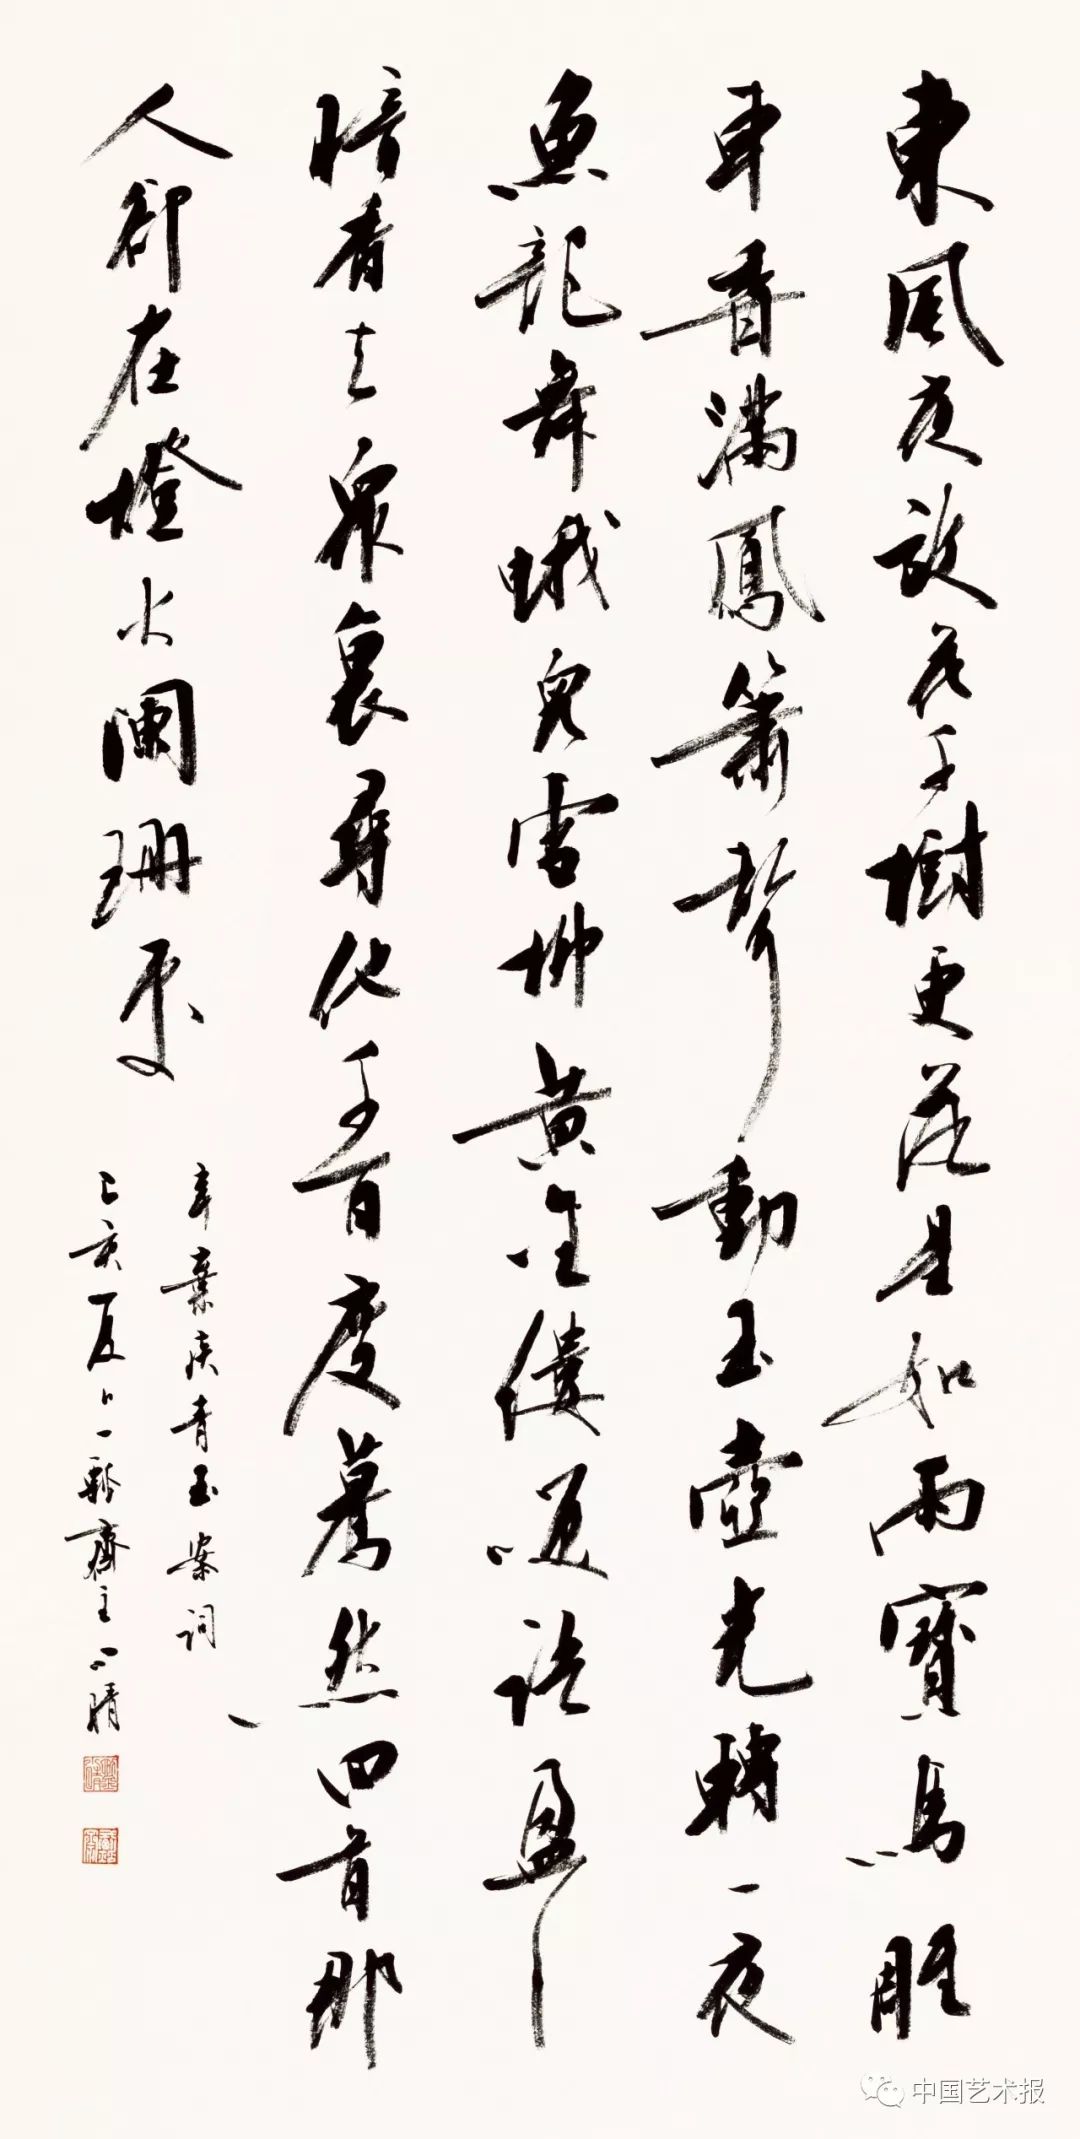 東風夜放花千樹更落星如雨寶馬雕
車香滿鳳簫聲動玉壺光轉一夜
魚龍舞蛾兒雪柳黃金縷笑語盈〻
暗香去眾裏尋他千百度驀然回首那
人卻在燈火闌珊處
辛棄疾青玉案詞
己亥夏日一齋主晴
中国艺术报